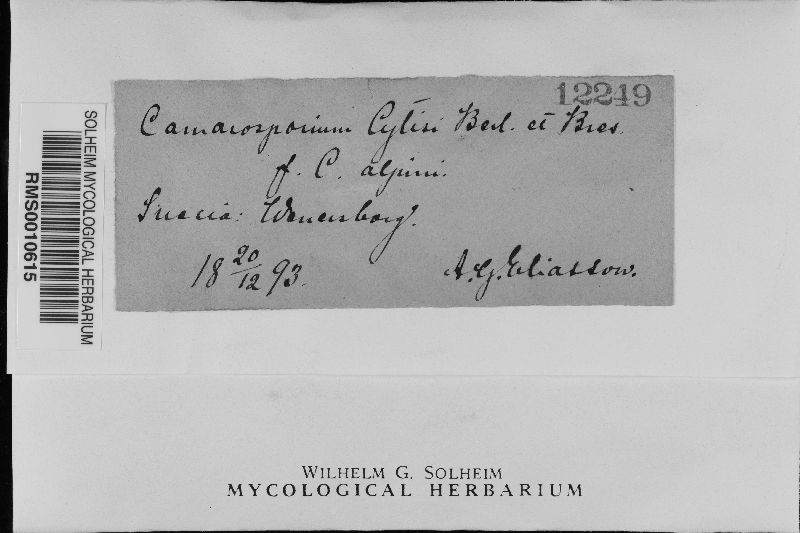 12249
Camarosporium Cytisi Berl. et Bres.
f. C. alpini.
Suecia: Wenersborg.
18 20/12 93.
A. G. Eliasson.
SOLHEIM MYCOLOGICAL HERBARIUM
RMS0010615
WILHELM G. SOLHEIM
MYCOLOGICAL HERBARIUM